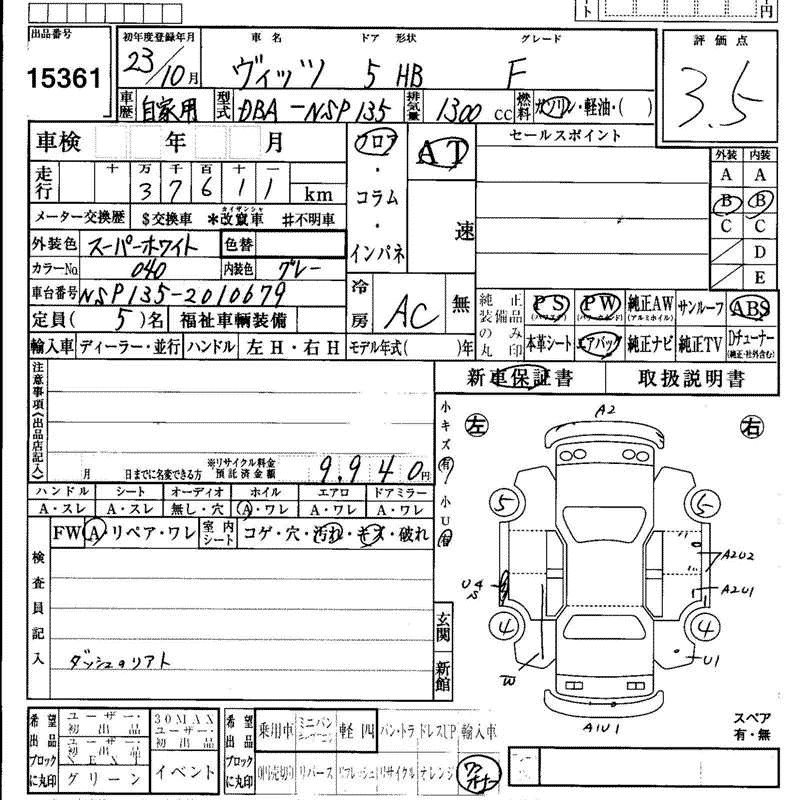 ート
円
出品番号
15361
初年度登録年月
23/10月
車名 ドア 形状 グレード
ヴィッツ 5 HB F
評価点
3.5
車歴 自家用 型式 DBA-NSP135 排気量 1300 CC 燃料 ガソリン・軽油・( )
車検 年 月
フロア・コラム・インパネ
AT
速
セールスポイント
外装 内装
A A
B B
C C
D
E
走行 十万千百十一
37611 km
メーター交換歴 $交換車 *改竄車 #不明車
カイザンシャ
外装色 スーパーホワイト 色替
カラーNo. 040 内装色 グレー
車台番号 NSP135-2010679
冷房 AC 無
定員( 5 )名 福祉車輌装備
純正装備品のみ丸印
PS PW 純正AW サンルーフ ABS
(パワステ) (パワーウインド) (アルミホイル)
本革シート エアバック 純正ナビ 純正TV Dチューナー
(純正・社外含む)
輸入車 ディーラー・並行 ハンドル 左H・右H モデル年式( )年
新車保証書 取扱説明書
注意事項(出品店記入)
月 日までに名変できる方 ※リサイクル料金預託済金額 9,940円
小キズ有 小U有
左 右
A2
5 5
4 4
U4
S
A2U2
A2U1
W
U1
A1U1
ハンドル シート オーディオ ホイル エアロ ドアミラー
A・スレ A・スレ 無し・穴 A・ワレ A・ワレ A・ワレ
FW A・リペア・ワレ 室内シート コゲ・穴・汚れ・キズ・破れ
検査員記入
ダッシュリアト
玄関
新館
スペア
有・無
希望出品ブロックに丸印
ユーザー・初出品
ユーザー・初出品NEXT
グリーン
30MAXユーザー・初出品
イベント
希望出品ブロックに丸印
乗用車 ミニバン 軽四 バン・トラ ドレスUP 輸入車
0円売切り リバース リフレッシュ リサイクル チャレンジ ワンオーナー